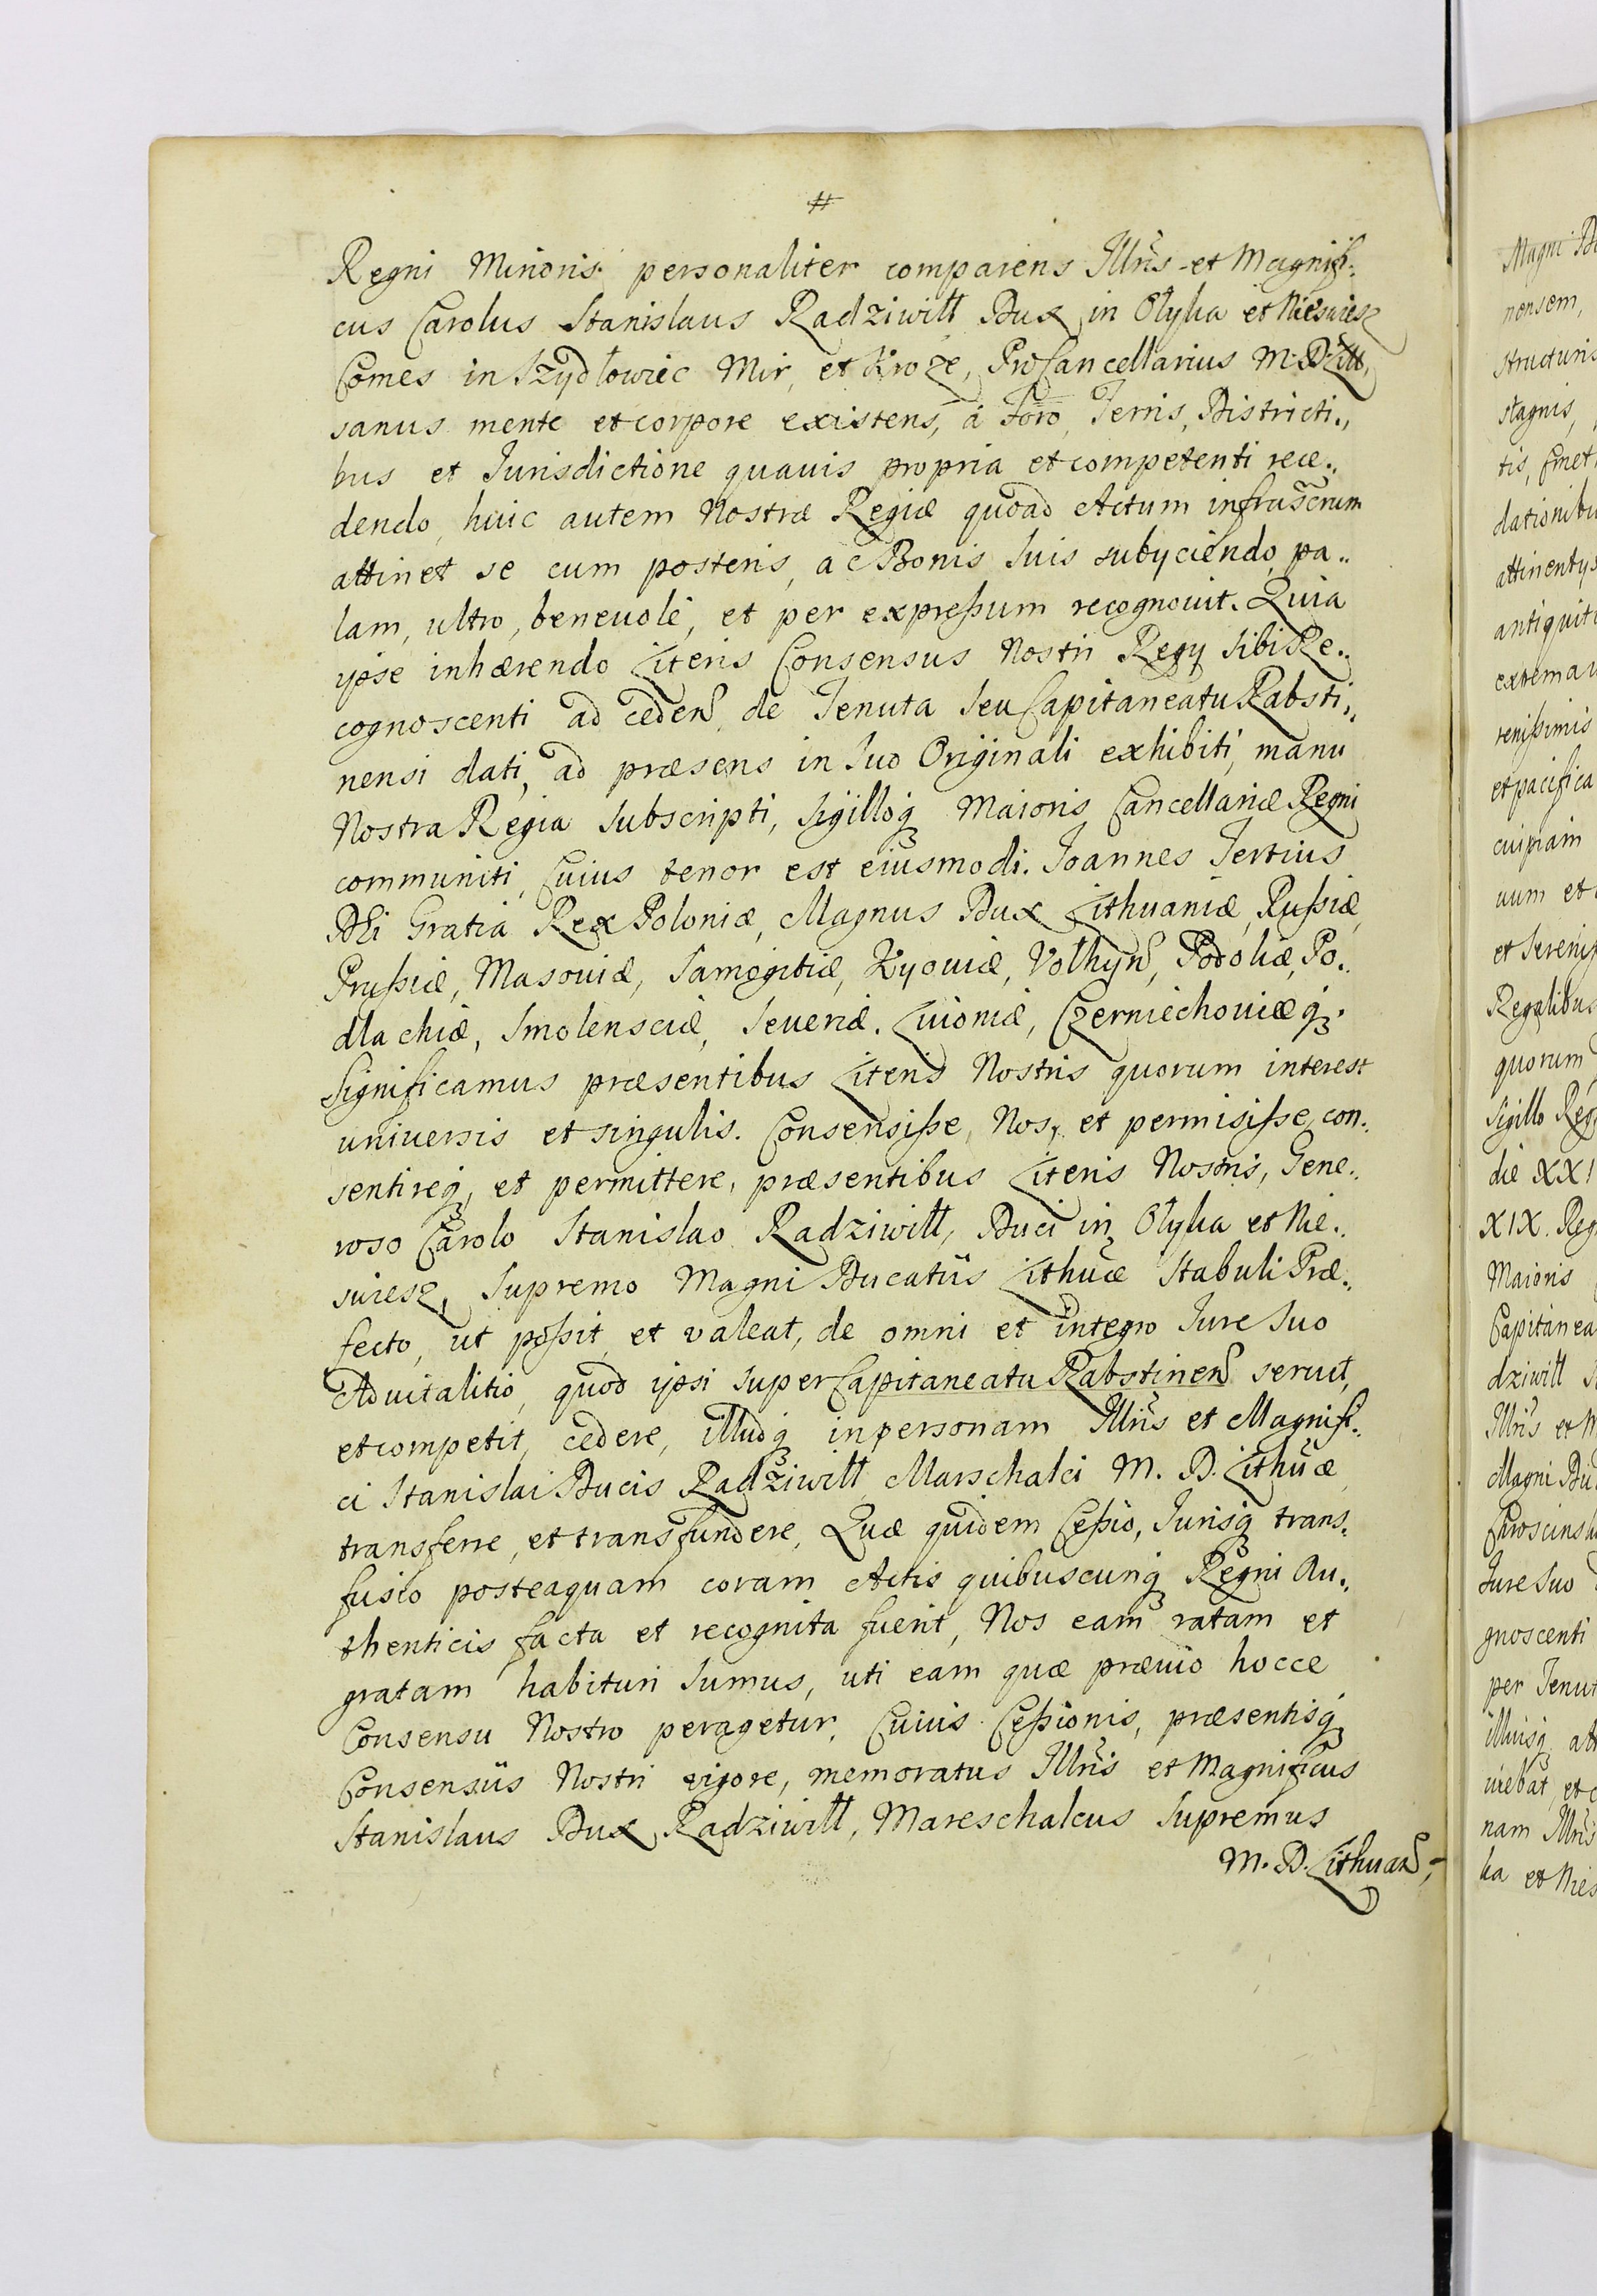 #
Regni Minoris personaliter comparens Illr̃is et Magnifi-
cus Carolus Stanislaus Radziwiłł Dux in Ołyka et Nieswiesz
Comes in Szydłowiec Mir, et Kroże, ProCancellarius M. D. Litt,
sanus mente et corpore existens, à Foro, Terris, Districti-
bus et Jurisdictione quavis propria et competenti rece-
dendo, huic autem Nostræ Regiæ quoad Actum infrascr̃um
attinet se cum posteris, ac Bonis suis subyciendo, pa-
lam, ultro, benevolè, et per expreßum recognovit. Quia
ipse inhærendo Literis Consensus Nostri Regy sibi Re-
cognoscenti ad ceden̄ de Tenuta seu Capitaneatu Rabsti-
nensi dati, ad præsens in suo Originali exhibiti, manu
Nostra Regia subscripti, sigilloq Maioris Cancellariæ Regni
communiti, Cuius tenor est eiusmodi. Joannes Tertius
DEi Gratia Rex Poloniæ, Magnus Dux Lithuaniæ, Rußiæ,
Prußiæ, Masoviæ, Samogitiæ, Kyoviæ, Volhyn̄, Podoliæ, Po-
dlachiæ, Smolensciæ, Severiæ. Livoniæ, Czerniechoviæq.
Significamus præsentibus Literis Nostris quorum interest
universis et singulis. Consensiße Nos, et permisiße, con-
sentireq, et permittere, præsentibus Literis Nostris, Gene-
roso Carolo Stanislao Radziwiłł, Duci in Ołyka et Nie-
swiesz, Supremo Magni Ducatûs Lithũæ Stabuli Præ-
fecto, ut poßit et valeat, de omni et integro Jure suo
Advitalitio, quod ipsi super Capitaneatu Rabstinen̄ servit,
et competit, cedere, illudq in personam Illr̃is et Magnifi-
ci Stanislai Ducis Radziwiłł Marschalci M. D. Lithũæ
transferre, et transfundere, Quæ quidem Ceßio, Jurisq trans-
fusio posteaquam coram Actis quibuscunq Regni Au-
thenticis facta et recognita fuerit, Nos eam ratam et
gratam habituri sumus, uti eam quæ prævio hocce
Consensu Nostro peragetur, Cuius Ceßionis, præsentisq
Consensûs Nostri vigore, memoratus Illr̃is et Magnificus
Stanislaus Dux Radziwiłł, Mareschalcus Supremus
M. D. Lithuan̄,